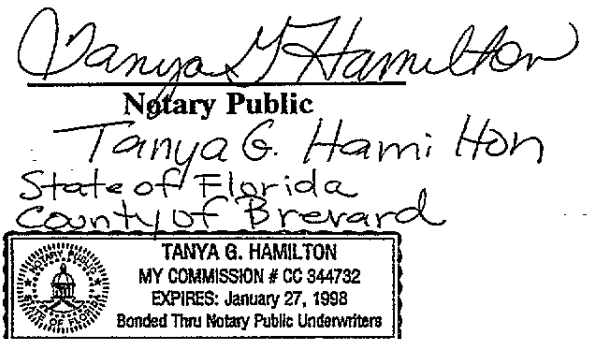 Tanya G Hamilton
Notary Public
Tanya G. Hamilton
State of Florida
County of Brevard
NOTARY PUBLIC
STATE OF FLORIDA
TANYA G. HAMILTON
MY COMMISSION # CC 344732
EXPIRES: January 27, 1998
Bonded Thru Notary Public Underwriters